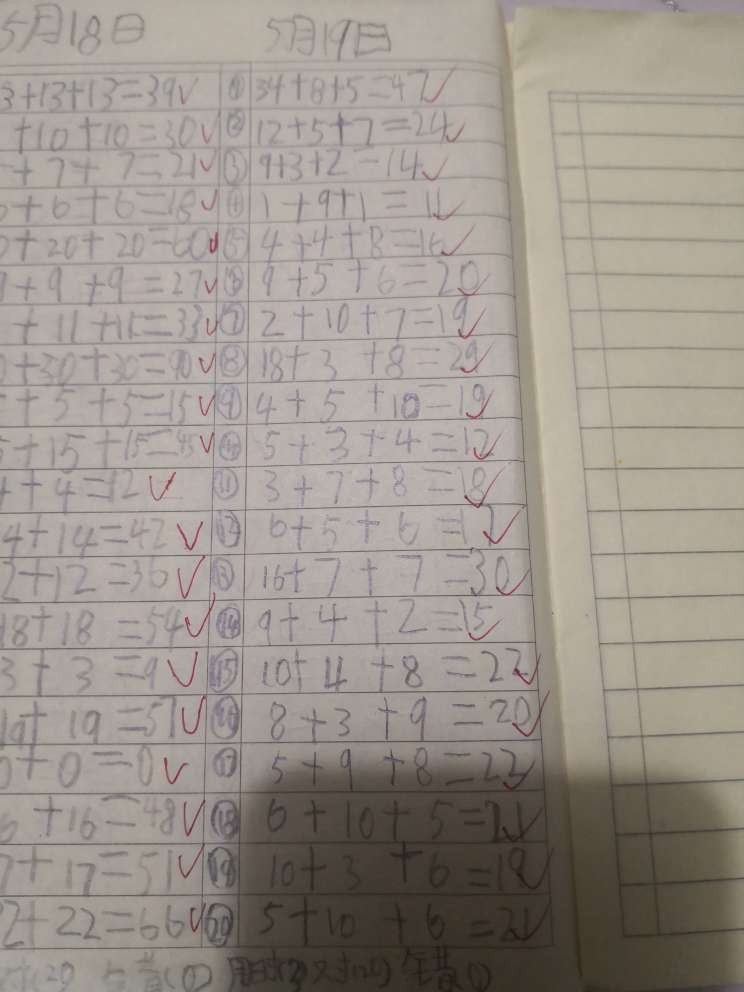 5月18日 5月19日
3+13+13=39 ① 34+8+5=47
+10+10=30 ② 12+5+7=24
+7+7=21 ③ 9+3+2=14
6+6+6=18 ④ 1+9+1=11
0+20+20=60 ⑤ 4+4+8=16
9+9+9=27 ⑥ 9+5+6=20
+11+11=33 ⑦ 2+10+7=19
0+30+30=90 ⑧ 18+3+8=29
5+5+5=15 ⑨ 4+5+10=19
5+15+15=45 ⑩ 5+3+4=12
4+4=12 ⑪ 3+7+8=18
4+14=42 ⑫ 6+5+6=17
2+12=36 ⑬ 16+7+7=30
18+18=54 ⑭ 9+4+2=15
3+3=9 ⑮ 10+4+8=22
19+19=57 ⑯ 8+3+9=20
0+0=0 ⑰ 5+9+8=22
6+16=48 ⑱ 6+10+5=21
7+17=51 ⑲ 10+3+6=19
22+22=66 ⑳ 5+10+6=21